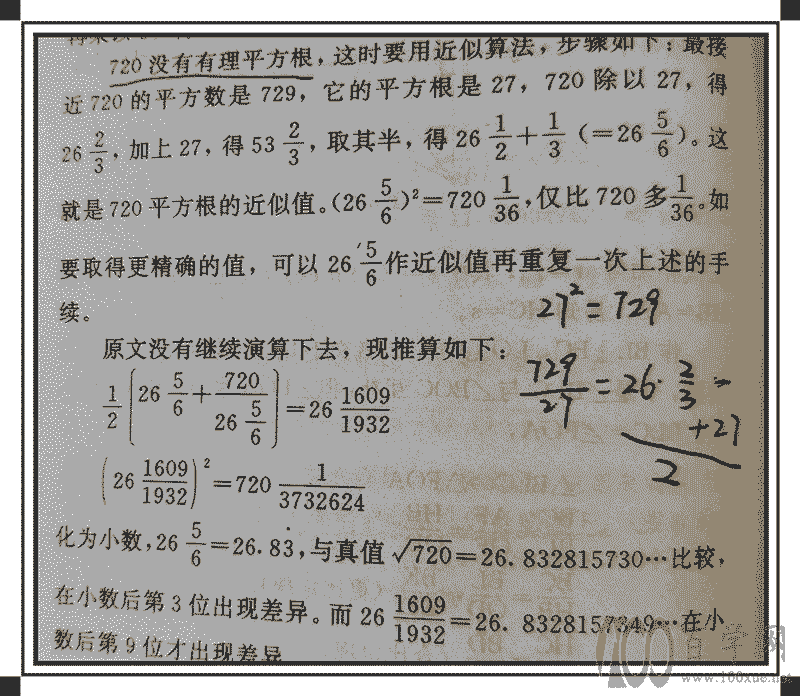 720 没有有理平方根，这时要用近似算法，步骤如下：最接
近 720 的平方数是 729，它的平方根是 27，720 除以 27，得
26 2/3，加上 27，得 53 2/3，取其半，得 26 1/2 + 1/3 (=26 5/6)。这
就是 720 平方根的近似值。(26 5/6)²=720 1/36，仅比 720 多 1/36。如
要取得更精确的值，可以 26 5/6 作近似值再重复一次上述的手
续。
27²=729
原文没有继续演算下去，现推算如下：
1/2 [26 5/6 + 720/(26 5/6)] = 26 1609/1932
729/27 = 26· 2/3 =
+27
2
(26 1609/1932)² = 720 1/3732624
化为小数，26 5/6 = 26.83̇，与真值 √720 = 26.832815730…比较，
在小数后第 3 位出现差异。而 26 1609/1932 = 26.8328157349…在小
数后第 9 位才出现差异
100 自学网
www.100xue.net